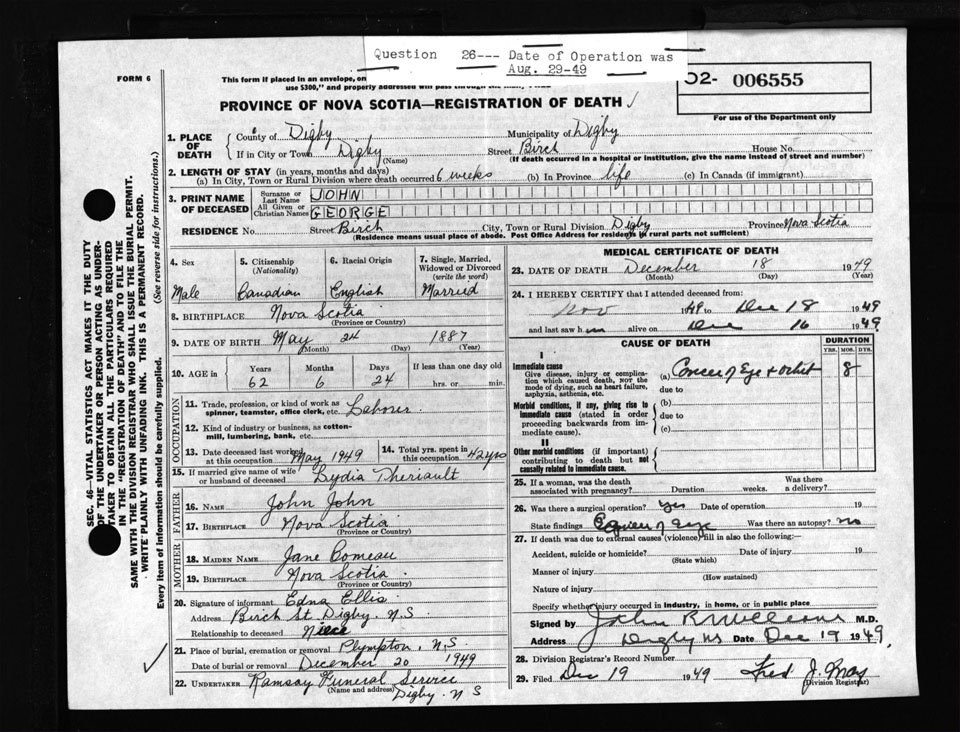 Question 26--- Date of Operation was
Aug. 29-49
FORM 6
This form if placed in an envelope, on
use $300," and properly addressed will pass through the
O2- 006555
For use of the Department only
PROVINCE OF NOVA SCOTIA—REGISTRATION OF DEATH ✓
1. PLACE OF DEATH
County of Digby Municipality of Digby
If in City or Town Digby (Name) Street Birch House No.
(If death occurred in a hospital or institution, give the name instead of street and number)
2. LENGTH OF STAY (in years, months and days)
(a) In City, Town or Rural Division where death occurred 6 weeks (b) In Province life (c) In Canada (if immigrant)
3. PRINT NAME OF DECEASED
Surname or Last Name JOHN
All Given or Christian Names GEORGE
RESIDENCE No. Street Birch City, Town or Rural Division Digby Province Nova Scotia
(Residence means usual place of abode. Post Office Address for residents in rural parts not sufficient)
4. Sex Male
5. Citizenship (Nationality) Canadian
6. Racial Origin English
7. Single, Married, Widowed or Divorced (write the word) Married
8. BIRTHPLACE Nova Scotia
(Province or Country)
9. DATE OF BIRTH May 24 1887
(Month) (Day) (Year)
10. AGE in Years 62 Months 6 Days 24 If less than one day old hrs. or min.
OCCUPATION
11. Trade, profession, or kind of work as spinner, teamster, office clerk, etc. Laborer
12. Kind of industry or business, as cotton-mill, lumbering, bank, etc.
13. Date deceased last worked at this occupation May 1949
14. Total yrs. spent in this occupation 42 yrs
15. If married give name of wife or husband of deceased Lydia Theriault
FATHER
16. NAME John John
17. BIRTHPLACE Nova Scotia
(Province or Country)
MOTHER
18. MAIDEN NAME Jane Comeau
19. BIRTHPLACE Nova Scotia
(Province or Country)
20. Signature of informant Edna Ellis
Address Birch St. Digby. N.S
Relationship to deceased Niece
21. Place of burial, cremation or removal Plympton, N.S.
Date of burial or removal December 20 1949
22. UNDERTAKER Ramsay Funeral Service
(Name and address) Digby. N S
MEDICAL CERTIFICATE OF DEATH
23. DATE OF DEATH December 18 1949
(Month) (Day) (Year)
24. I HEREBY CERTIFY that I attended deceased from:
Nov 1949 to Dec 18 1949
and last saw him alive on Dec 16 1949
CAUSE OF DEATH
DURATION
YRS. MOS. DYS.
I
Immediate cause
Give disease, injury or complication which caused death, not the mode of dying, such as heart failure, asphyxia, asthenia, etc.
(a) Cancer of Eye & orbit 8
due to
Morbid conditions, if any, giving rise to immediate cause (stated in order proceeding backwards from immediate cause).
(b)
due to
(c)
II
Other morbid conditions (if important) contributing to death but not causally related to immediate cause.
25. If a woman, was the death associated with pregnancy? Duration weeks. Was there a delivery?
26. Was there a surgical operation? yes Date of operation 19
State findings Cancer of Eye Was there an autopsy? no
27. If death was due to external causes (violence) fill in also the following:—
Accident, suicide or homicide? Date of injury 19
(State which)
Manner of injury
(How sustained)
Nature of injury
Specify whether injury occurred in industry, in home, or in public place
Signed by John R McCleave M.D.
Address Digby NS Date Dec 19 1949
28. Division Registrar's Record Number
29. Filed Dec 19 1949 Fred J. May
(Division Registrar)
SEC. 46—VITAL STATISTICS ACT MAKES IT THE DUTY
OF THE UNDERTAKER OR PERSON ACTING AS UNDER-
TAKER TO OBTAIN ALL THE PARTICULARS REQUIRED
IN THE "REGISTRATION OF DEATH" AND TO FILE THE
SAME WITH THE DIVISION REGISTRAR WHO SHALL ISSUE THE BURIAL PERMIT.
WRITE PLAINLY WITH UNFADING INK. THIS IS A PERMANENT RECORD.
Every item of information should be carefully supplied. (See reverse side for instructions.)